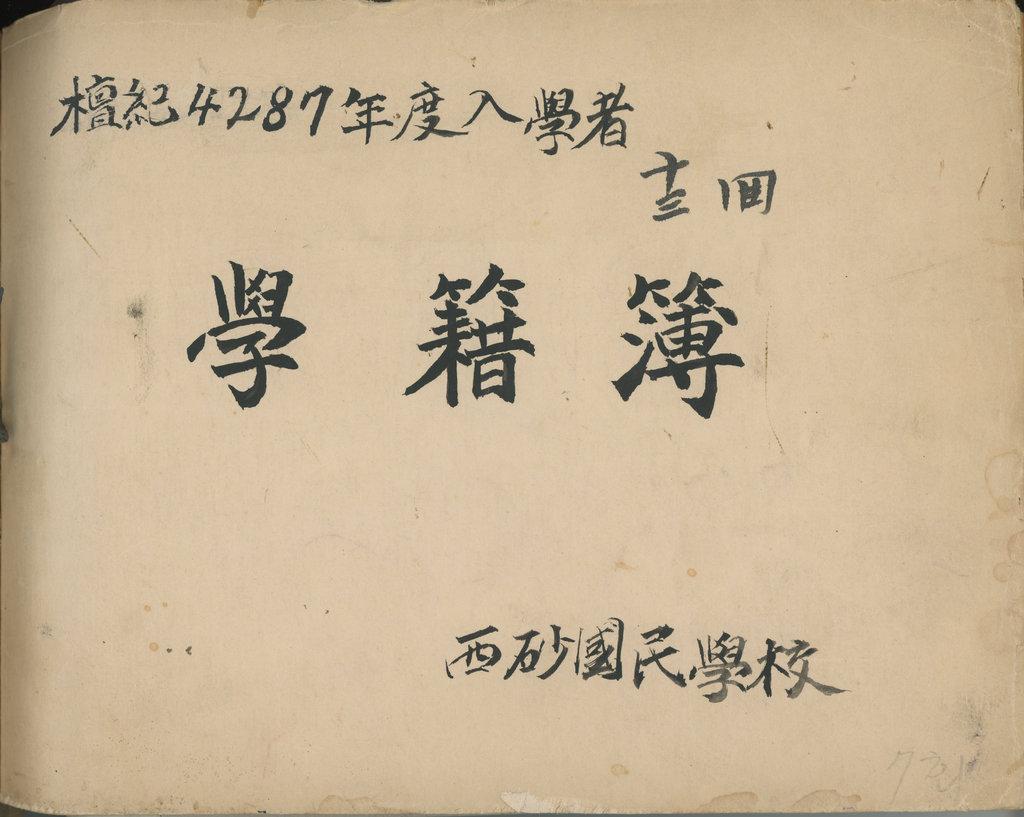 檀紀4287年度入學者
十三回
學籍簿
西砂國民學校